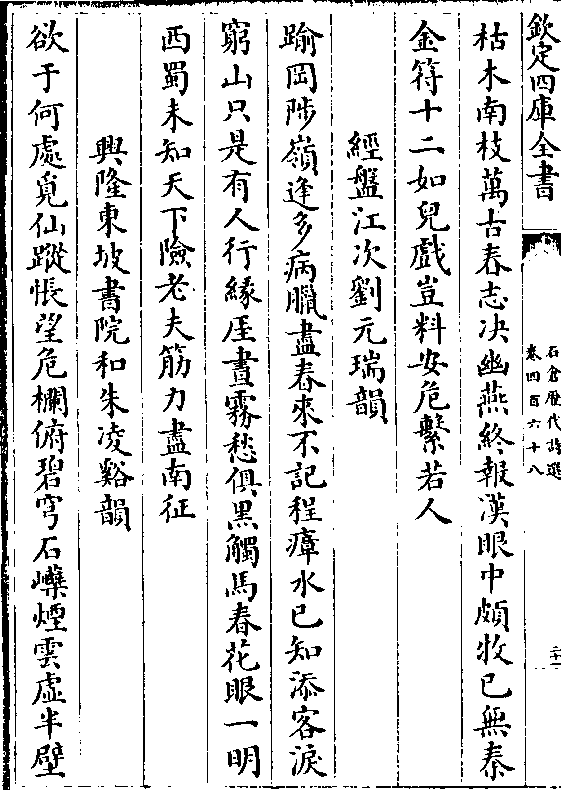 欽定四庫全書
石倉歷代詩選
卷四百六十八
二十一
枯木南枝萬古春志決幽燕終報漢眼中頗牧已無秦
金符十二如兒戲豈料安危繫若人
經盤江次劉元瑞韻
踰岡陟嶺逢多病臘盡春來不記程瘴水已知添客淚
窮山只是有人行緣厓晝霧愁俱黑觸馬春花眼一明
西蜀未知天下險老夫筋力盡南征
興隆東坡書院和朱凌谿韻
欲于何處覓仙蹤悵望危欄俯碧穹石巘煙雲虛半壁